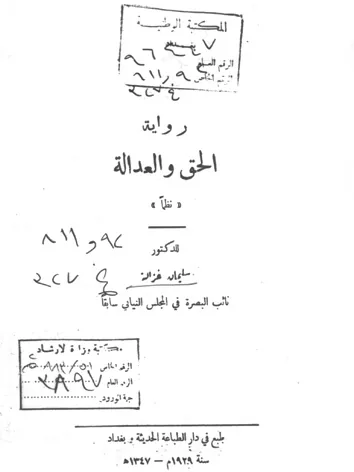 المكتبة الوطنية
الرقم العام
الرقم الخاص ٨١١,٩
رواية
الحق والعدالة
« نظماً »
للدكتور
سليمان غزالة
نائب البصرة في المجلس النيابي سابقاً
مكتبة وزارة الارشاد
الرقم الخاص
الرقم العام ٣٨٩٧
جهة الورود
طبع في دار الطباعة الحديثة و بغداد
سنة ١٩٢٩م — ١٣٤٧ھ